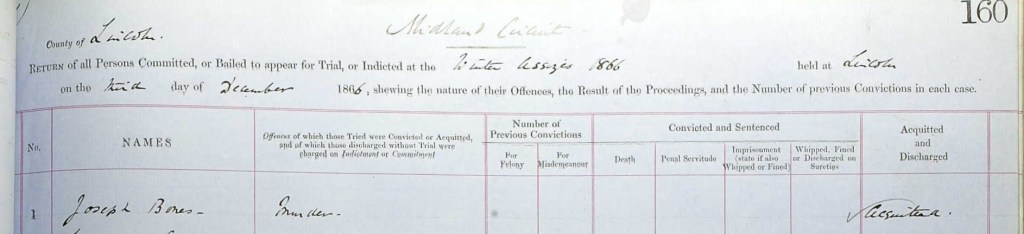 160
Midland Circuit
County of Lincoln.
RETURN of all Persons Committed, or Bailed to appear for Trial, or Indicted at the Winter Assizes 1866 held at Lincoln
on the third day of December 1866, shewing the nature of their Offences, the Result of the Proceedings, and the Number of previous Convictions in each case.
No.
NAMES
Offences of which those Tried were Convicted or Acquitted,
and of which those discharged without Trial were
charged on Indictment or Commitment
Number of
Previous Convictions
For
Felony
For
Misdemeanour
Convicted and Sentenced
Death
Penal Servitude
Imprisonment
(state if also
Whipped or Fined)
Whipped, Fined
or Discharged on
Sureties
Acquitted
and
Discharged
1 Joseph Bones - Murder - Acquitted.